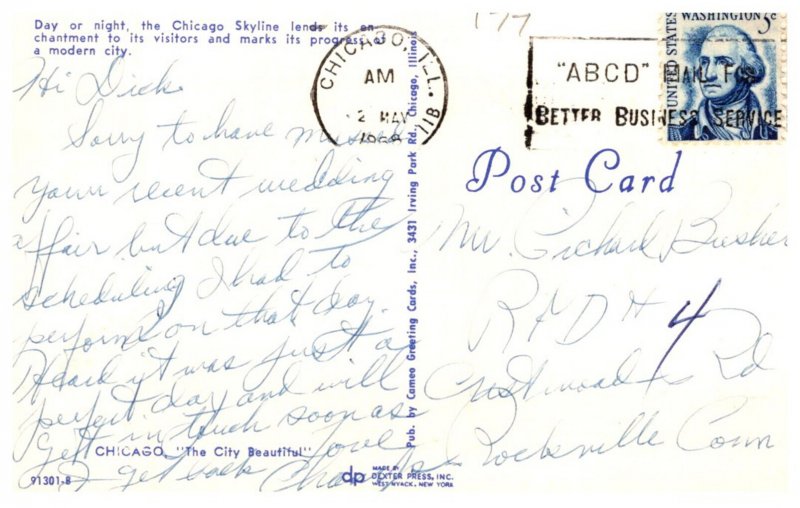 Day or night, the Chicago Skyline lends its en-
chantment to its visitors and marks its progress of
a modern city.
Hi Dick
Sorry to have missed
your recent wedding
affair but due to the
scheduling I had to
perform on that day.
Heard it was just a
perfect day and will
get in touch soon as
I get back Love
CHICAGO, "The City Beautiful"
91301-B
Pub. by Cameo Greeting Cards, Inc., 3431 Irving Park Rd., Chicago, Illinois
dp MADE BY
DEXTER PRESS, INC.
WEST NYACK, NEW YORK
CHICAGO, ILL. 118
AM
2 MAY
"ABCD" MAIL FOR
BETTER BUSINESS SERVICE
UNITED STATES
WASHINGTON 5c
Post Card
Mr. Richard
4
Rd
Rockville Conn